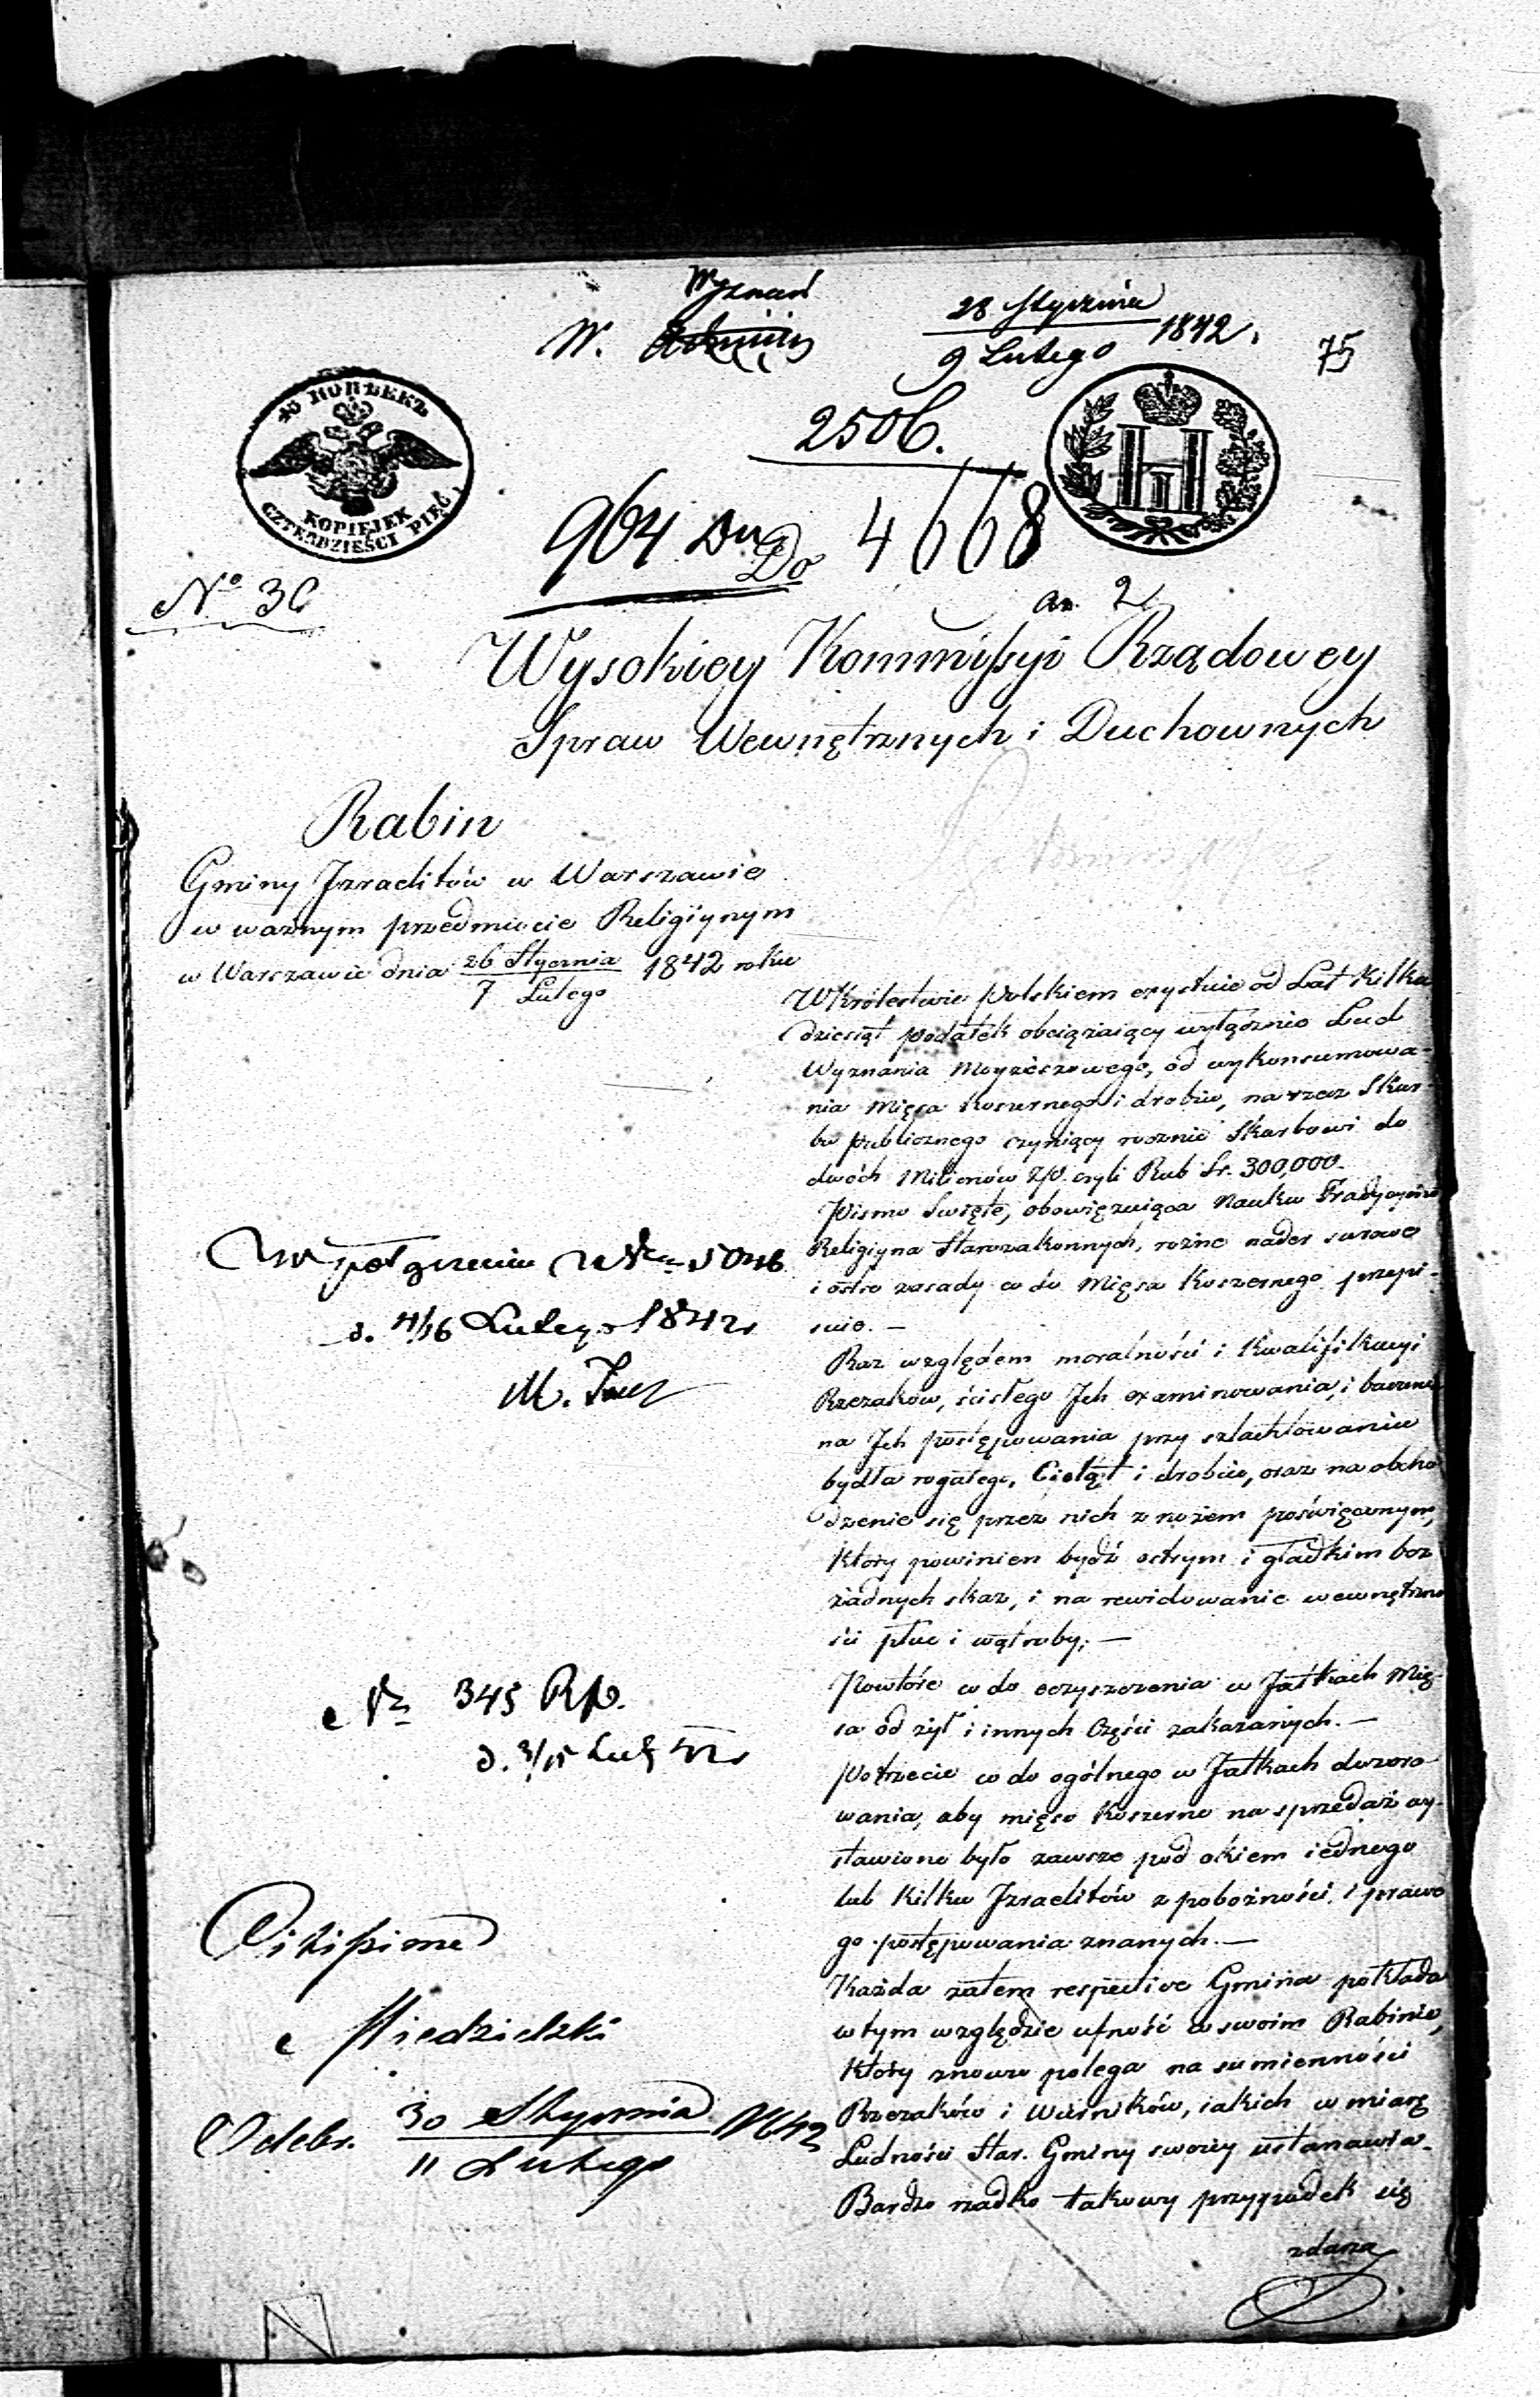 Wyznań
W.
28 Stycznia
9 Lutego 1842.
75
2506.
45 КОПѢЕКЪ
KOPIEJEK
CZTERDZIEŚCI PIĘĆ
964 Do 4668
an. 2
No 30
Wysokiey Kommissyi Rządowey
Spraw Wewnętrznych i Duchownych
Rabin
Gminy Izraelitów w Warszawie
w ważnym przedmiocie Religiynym
w Warszawie dnia 26 Stycznia
7 Lutego 1842 roku
W Królestwie Polskiem exystuie od Lat kilka
dziesiąt podatek obciążaiący wyłącznie Lud
Wyznania Moyżeszowego, od wykonsumowa-
nia Mięsa Koszernego i drobiu, na rzecz Skar-
bu publicznego czyniący rocznie Skarbowi do
dwóch Milionów Złp. czyli Rub Sr. 300,000.
Pismo Święte, obowięzuiąca Nauka Tradycyina
Religiyna Starozakonnych, rożne nader surowe
i ostre zasady co do Mięsa Koszernego przepi-
suie. —
Raz względem moralności i Kwalifikacyi
Rzezaków, ścisłego Ich examinowania, i baczenia
na Ich postępowania przy szlachtowaniu
bydła rogatego, Cieląt i drobiu, oraz na obcho
dzenie się przez nich z nożem poświęconym,
który powinien bydź ostrym i gładkim bez
żadnych skaz, i na rewidowanie wewnętrzno
ści płuc i wątroby; —
Powtóre co do oczyszczenia w Jatkach Mię-
sa od żył i innych Części zakazanych. —
Potrzecie co do ogólnego w Jatkach dozoro-
wania, aby mięso Koszerne na sprzedaż wy-
stawione było zawsze pod okiem iednego
lub kilku Izraelitów z pobożności i prawe
go postępowania znanych. —
Każda zatem respective Gmina pokłada
w tym względzie ufność w swoim Rabinie,
który znowu polega na sumienności
Rzezaków i Wiernków, iakich w miarę
Ludności Star. Gminy swoiey ustanawia.
Bardzo rzadko takowy przypadek się
zdarza
d. 4/16 Lutego 1842
M.
Nr 345 Rp.
d. 3/15 Lut 42
Odebr. 30 Stycznia
11 Lutego 1842